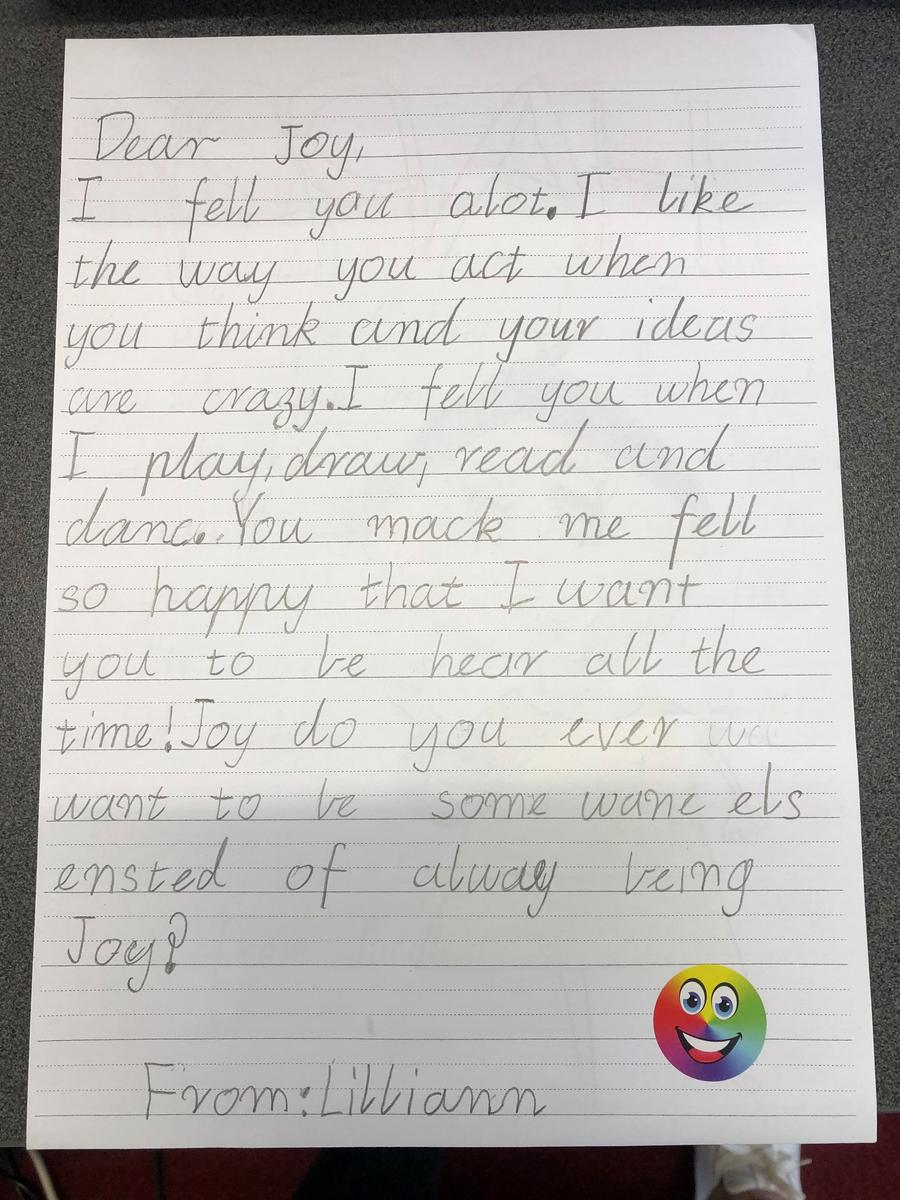 Dear Joy,
I fell you alot. I like
the way you act when
you think and your ideas
are crazy. I fell you when
I play, draw, read and
danc. You mack me fell
so happy that I want
you to be hear all the
time! Joy do you ever wa
want to be some wane els
ensted of alway being
Joy?
From: Lilliann